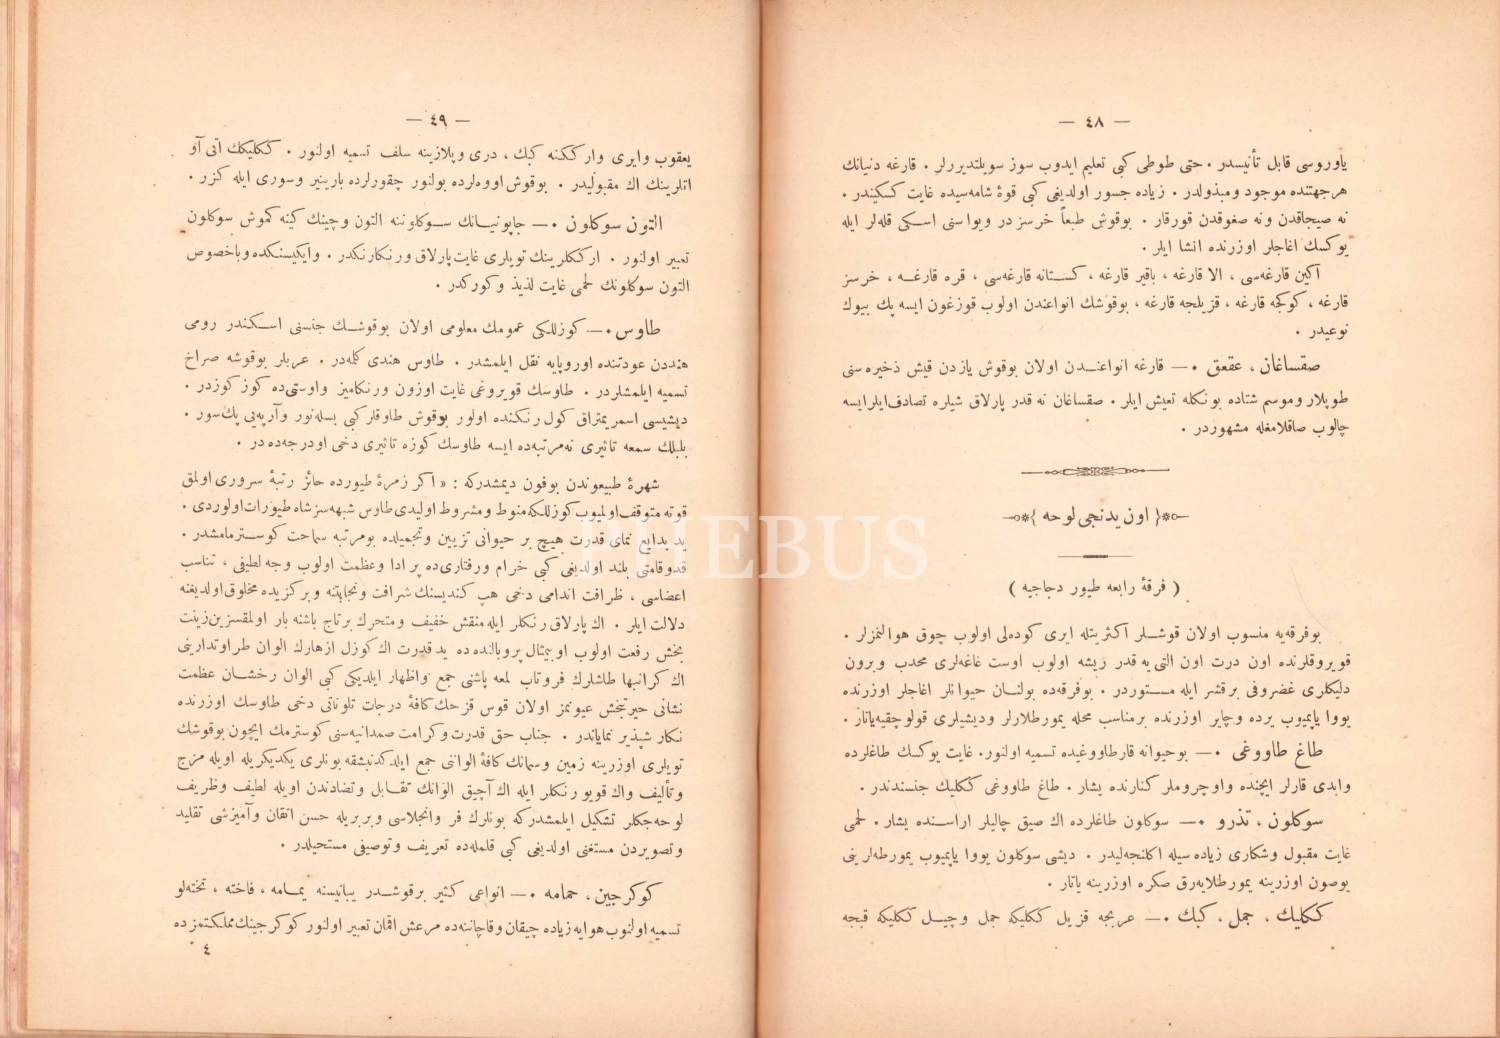 — ٤٨ —
یاوروسی قابل تأنیسدر . حتی طوطی کبی تعلیم ایدوب سوز سویلتدیررلر . قارغه دنیانك
هر جهتنده موجود ومبذولدر . زیاده جسور اولدیغی کبی قوۀ شامه‌سیده غایت کسکیندر .
نه صیجاقدن ونه صغوقدن قورقار . بوقوش طبعاً خرسز در ویواسنی اسکی قله‌لر ایله
یوکسك اغاجلر اوزرنده انشا ایلر .
آکین قارغه‌سی ، الا قارغه ، باقیر قارغه ، کستانه قارغه‌سی ، قره قارغه ، خرسز
قارغه ، کوکجه قارغه ، قزیلجه قارغه ، بوقوشك انواعندن اولوب قوزغون ایسه پك بیوك
نوعیدر .
صقساغان ، عقعق .— قارغه انواعندن اولان بوقوش یازدن قیش ذخیره سنی
طوپلار وموسم شتاده بونکله تعیش ایلر . صقساغان نه قدر پارلاق شیلره تصادف ایلرایسه
چالوب صاقلامغله مشهوردر .
﴿ اون یدنجی لوحه ﴾
( فرقۀ رابعه طیور دجاجیه )
بوفرقه‌یه منسوب اولان قوشلر اکثریتله ایری کوده‌لی اولوب چوق هوالنمزلر .
قویروقلرنده اون درت اون التی یه قدر ریشه اولوب اوست غاغه‌لری محدب وبرون
دلیکلری غضروفی برقشر ایله مستوردر . بوفرقه‌ده بولنان حیوانلر اغاجلر اوزرنده
یووا یاپمیوب یرده وچایر اوزرنده برمناسب محله یمورطلارلر ودیشیلری قولوچقیه یاتار .
طاغ طاووغی .— بوحیوانه قارطاووغیده تسمیه اولنور. غایت یوکسك طاغلرده
وابدی قارلر ایچنده واوچروملر کنارنده یشار . طاغ طاووغی ککلیك جنسندندر .
سوکلون ، تذرو .— سوکلون طاغلرده اك صیق چالیلر اراسنده یشار . لحمی
غایت مقبول وشکاری زیاده سیله اکلنجه‌لیدر . دیشی سوکلون یووا یاپمیوب یمورطه‌لرینی
یوصون اوزرینه یمورطلایه‌رق صکره اوزرینه یاتار .
ککلیك ، حجل ، کبك .— عربجه قزیل ککلیکه حجل وچیل ککلیکه قبجه
— ٤٩ —
یعقوب وایری وارککنه کبك ، دری وپلازینه سلف تسمیه اولنور . ککلیکك اتی آو
اتلرینك اك مقبولیدر . بوقوش اووه‌لرده بولنور چقورلرده بارینیر وسوری ایله کزر .
التون سوکلون .— جاپونیانك سوکلوننه التون وچینك کینه کموش سوکلون
تعبیر اولنور . ارککلرینك تویلری غایت پارلاق ورنکارنکدر . وایکیسنکده وباخصوص
التون سوکلونك لحمی غایت لذیذ وکورکدر .
طاوس .— کوزللکی عمومك معلومی اولان بوقوشك جنسنی اسکندر رومی
هنددن عودتنده اوروپایه نقل ایلمشدر . طاوس هندی کله‌در . عربلر بوقوشه صراخ
تسمیه ایلمشلردر . طاوسك قویروغی غایت اوزون ورنکامیز واوستی‌ده کوز کوزدر .
دیشیسی اسمر یمتراق کول رنکنده اولور بوقوش طاوقلر کبی بسله‌نور وآرپه‌یی پك سور .
بلبلك سمعه تاثیری نه‌مرتبه‌ده ایسه طاوسك کوزه تاثیری دخی اودرجه‌ده در .
شهرۀ طبیعوندن بوفون دیمشدرکه : « اکر زمرۀ طیورده حائز رتبۀ سروری اولمق
قوته متوقف اولمیوب کوزللکه منوط ومشروط اولیدی طاوس شبهه‌سز شاه طیورات اولوردی .
ید بدایع نمای قدرت هیچ بر حیوانی تزیین وتجمیلده بومرتبه سماحت کوسترمامشدر .
قدوقامتی بلند اولدیغی کبی خرام ورفتاری‌ده پر ادا وعظمت اولوب وجه لطیفی ، تناسب
اعضاسی ، ظرافت اندامی دخی هپ کندیسنك شرافت ونجابتنه وبرکزیده مخلوق اولدیغنه
دلالت ایلر . اك پارلاق رنکلر ایله منقش خفیف ومتحرك برتاج باشنه بار اولمقسزین زینت
بخش رفعت اولوب اوبیمثال پروبالنده ده یدقدرت اك کوزل ازهارك الوان طراوتدارینی
اك کرانبها طاشلرك فروتاب لمعه پاشنی جمع واظهار ایلدیکی کبی الوان رخشان عظمت
نشانی حیرتبخش عیونمز اولان قوس قزحك کافۀ درجات تلوناتی دخی طاوسك اوزرنده
نکار شپذیر نمایاندر . جناب حق قدرت وکرامت صمدانیه‌سنی کوسترمك ایچون بوقوشك
تویلری اوزرینه زمین وسمانك کافۀ الواننی جمع ایلدکدنبشقه بونلری یکدیکریله اویله مزج
وتألیف واك قویو رنکلر ایله اك آچیق الوانك تقابل وتضادندن اویله لطیف وظریف
لوحه‌جکلر تشکیل ایلمشدرکه بونلرك فر وانجلاسی وبربریله حسن اتقان وآمیزشی تقلید
وتصویردن مستغنی اولدیغی کبی قلمله‌ده تعریف وتوصیفی مستحیلدر .
کوکرجین ، حمامه .— انواعی کثیر برقوشدر یبانیسنه یمامه ، فاخته ، تخته‌لو
تسمیه اولنوب هوایه زیاده چیقان وقاچاننه‌ده مرعش اقمان تعبیر اولنور کوکرجینك مملکتمزده
٤
PHEBUS